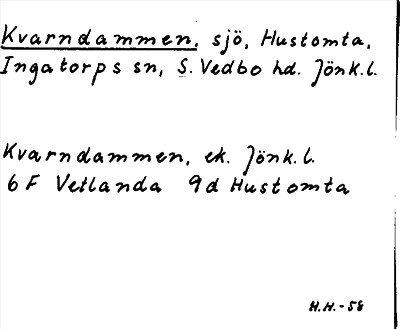 Kvarndammen, sjö, Hustomta,
Ingatorps sn, S. Vedbo hd. Jönk.l.
Kvarndammen, ek. Jönk.l.
6 F Vetlanda 9d Hustomta
H.H.-58